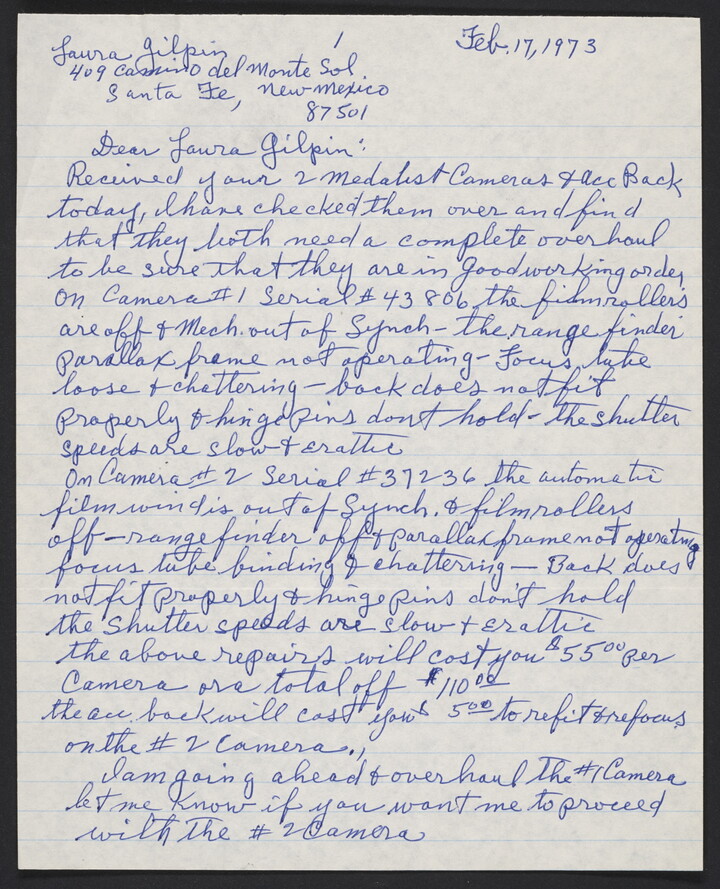 1
Feb. 17, 1973
Laura Gilpin
409 Camino del Monte Sol.
Santa Fe, New Mexico
87501
Dear Laura Gilpin:
Received your 2 Medalist Cameras & Acc Back
today, I have checked them over and find
that they both need a complete overhaul
to be sure that they are in good working order,
On Camera #1 Serial # 43806, the film rollers
are off & Mech. out of Synch - the range finder
parallax frame not operating - Focus tube
loose & chattering - back does not fit
properly & hinge pins dont hold - the shutter
speeds are slow & erattic
On Camera # 2 Serial # 37236 the automatic
film wind is out of Synch. & film rollers
off - range finder off & parallax frame not operating
focus tube binding & chattering - Back does
not fit properly & hinge pins don't hold
the Shutter speeds are slow & erattic
the above repairs will cost you $55 00 per
Camera or a total off $110 00
the acc. back will cost you $ 5 00 to refit & refocus
on the # 2 Camera.,
I am going ahead & overhaul the #1 Camera
let me know if you want me to proceed
with the # 2 Camera